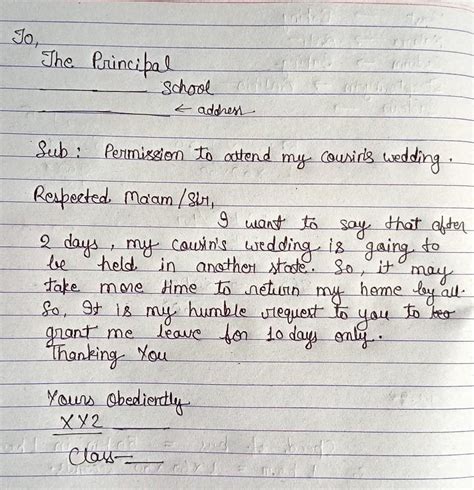 To,
The Principal
__________ School
__________ ← address
Sub : Permission to attend my cousin's wedding.
Respected Ma'am/Sir,
I want to say that after
2 days, my cousin's wedding is going to
be held in another state. So, it may
take more time to return my home by all.
So, It is my humble request to you to
grant me leave for 10 days only.
Thanking You
Yours Obediently
XYZ ______
Class-___